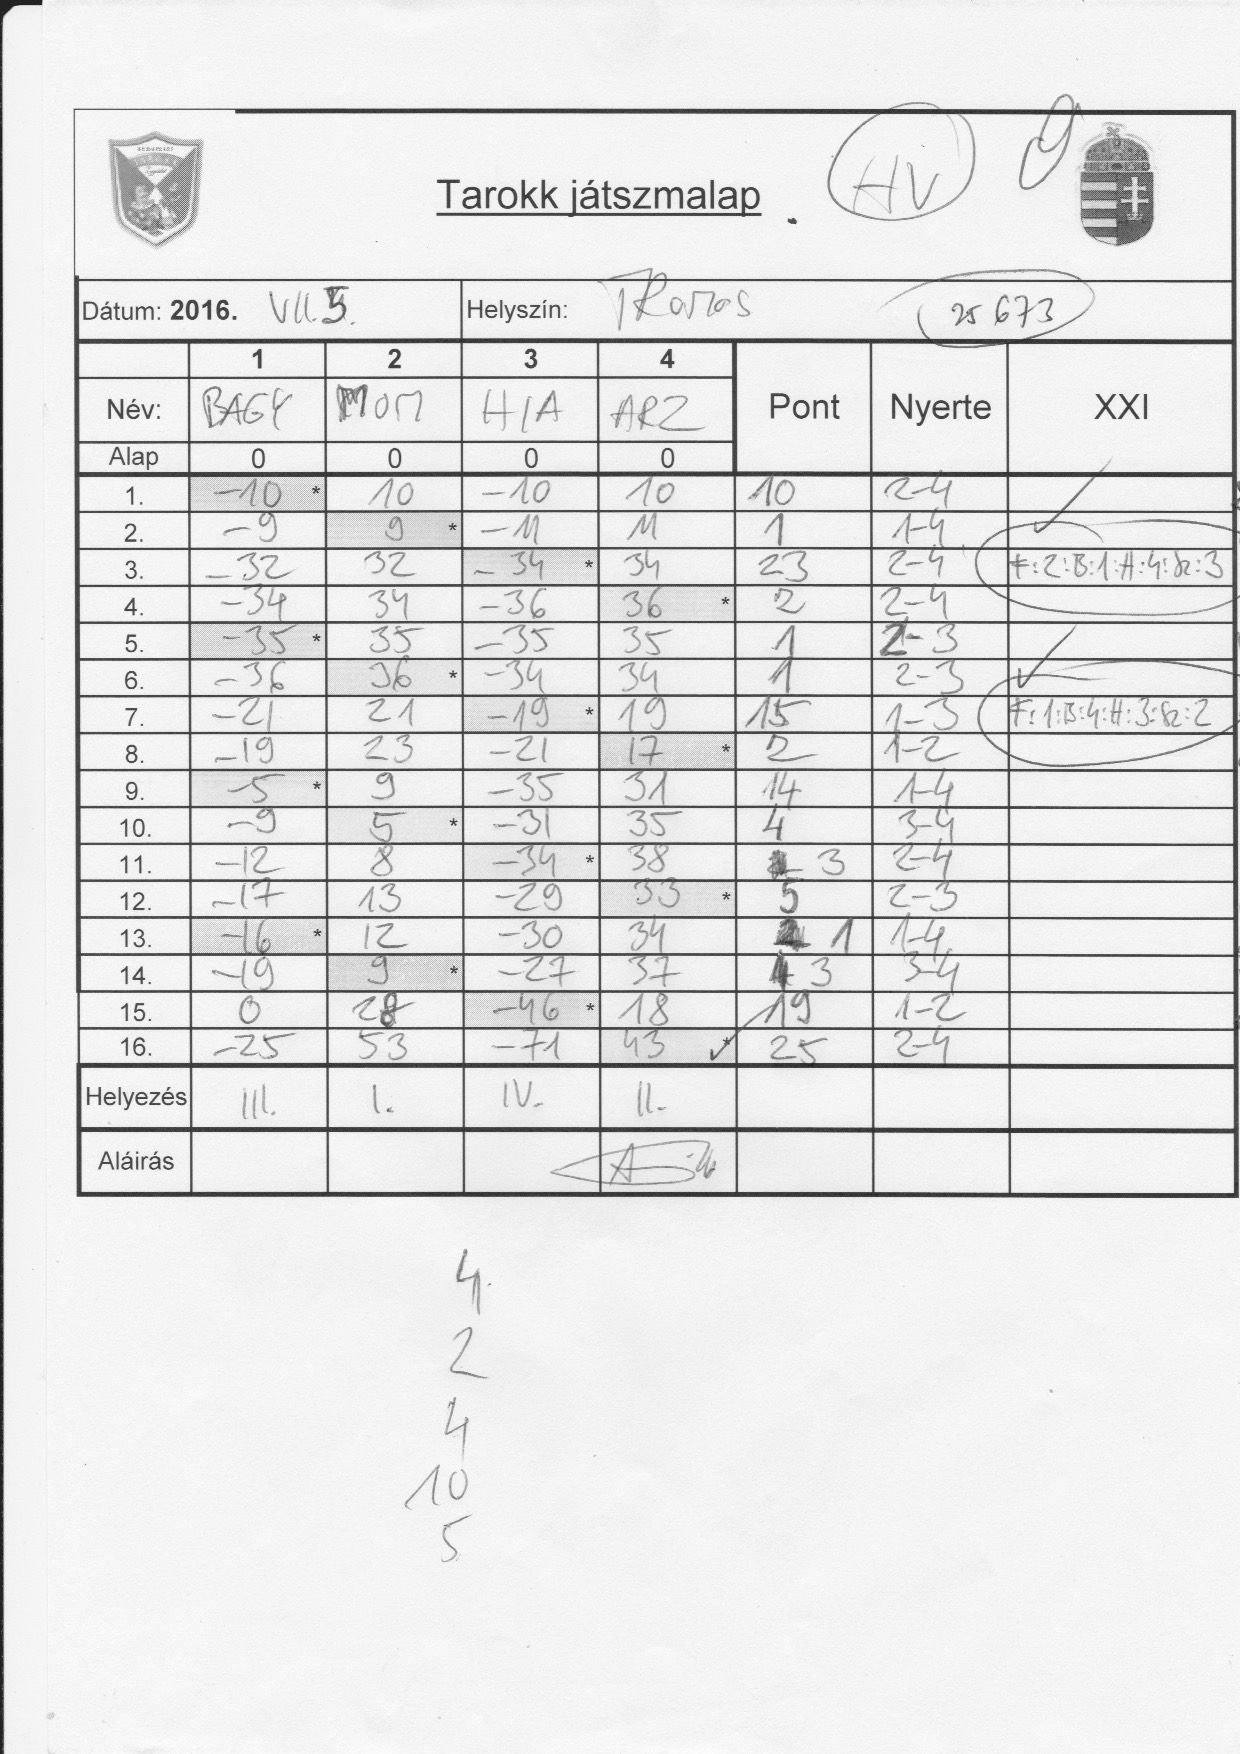 HV
Tarokk játszmalap
Dátum: 2016. VII.5. Helyszín:
25 673
1 2 3 4
Név: BAGY MOM HIA ARZ Pont Nyerte XXI
Alap 0 0 0 0
1. -10 * 10 -10 10 10 2-4
2. -9 9 * -11 11 1 1-4
3. -32 32 -34 * 34 23 2-4 F:2:B:1:H:4:Sz:3
4. -34 34 -36 36 * 2 2-4
5. -35 * 35 -35 35 1 2-3
6. -36 36 * -34 34 1 2-3
7. -21 21 -19 * 19 15 1-3 F:1:B:4:H:3:Sz:2
8. -19 23 -21 17 * 2 1-2
9. -5 * 9 -35 31 14 1-4
10. -9 5 * -31 35 4 3-4
11. -12 8 -34 * 38 3 2-4
12. -17 13 -29 33 * 5 2-3
13. -16 * 12 -30 34 1 1-4
14. -19 9 * -27 37 3 3-4
15. 0 28 -46 * 18 19 1-2
16. -25 53 -71 43 * 25 2-4
Helyezés III. I. IV. II.
Aláírás
4.
2
4
10
5